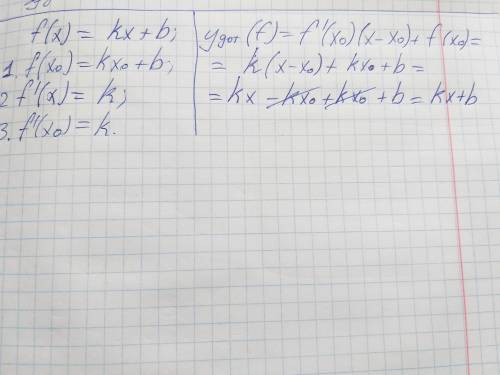 f(x) = kx + b;
1. f(x₀) = kx₀ + b;
2 f'(x) = k;
3. f'(x₀) = k.
yдот. (f) = f'(x₀)(x-x₀) + f(x₀) =
= k(x-x₀) + kx₀ + b =
= kx - kx₀ + kx₀ + b = kx+b